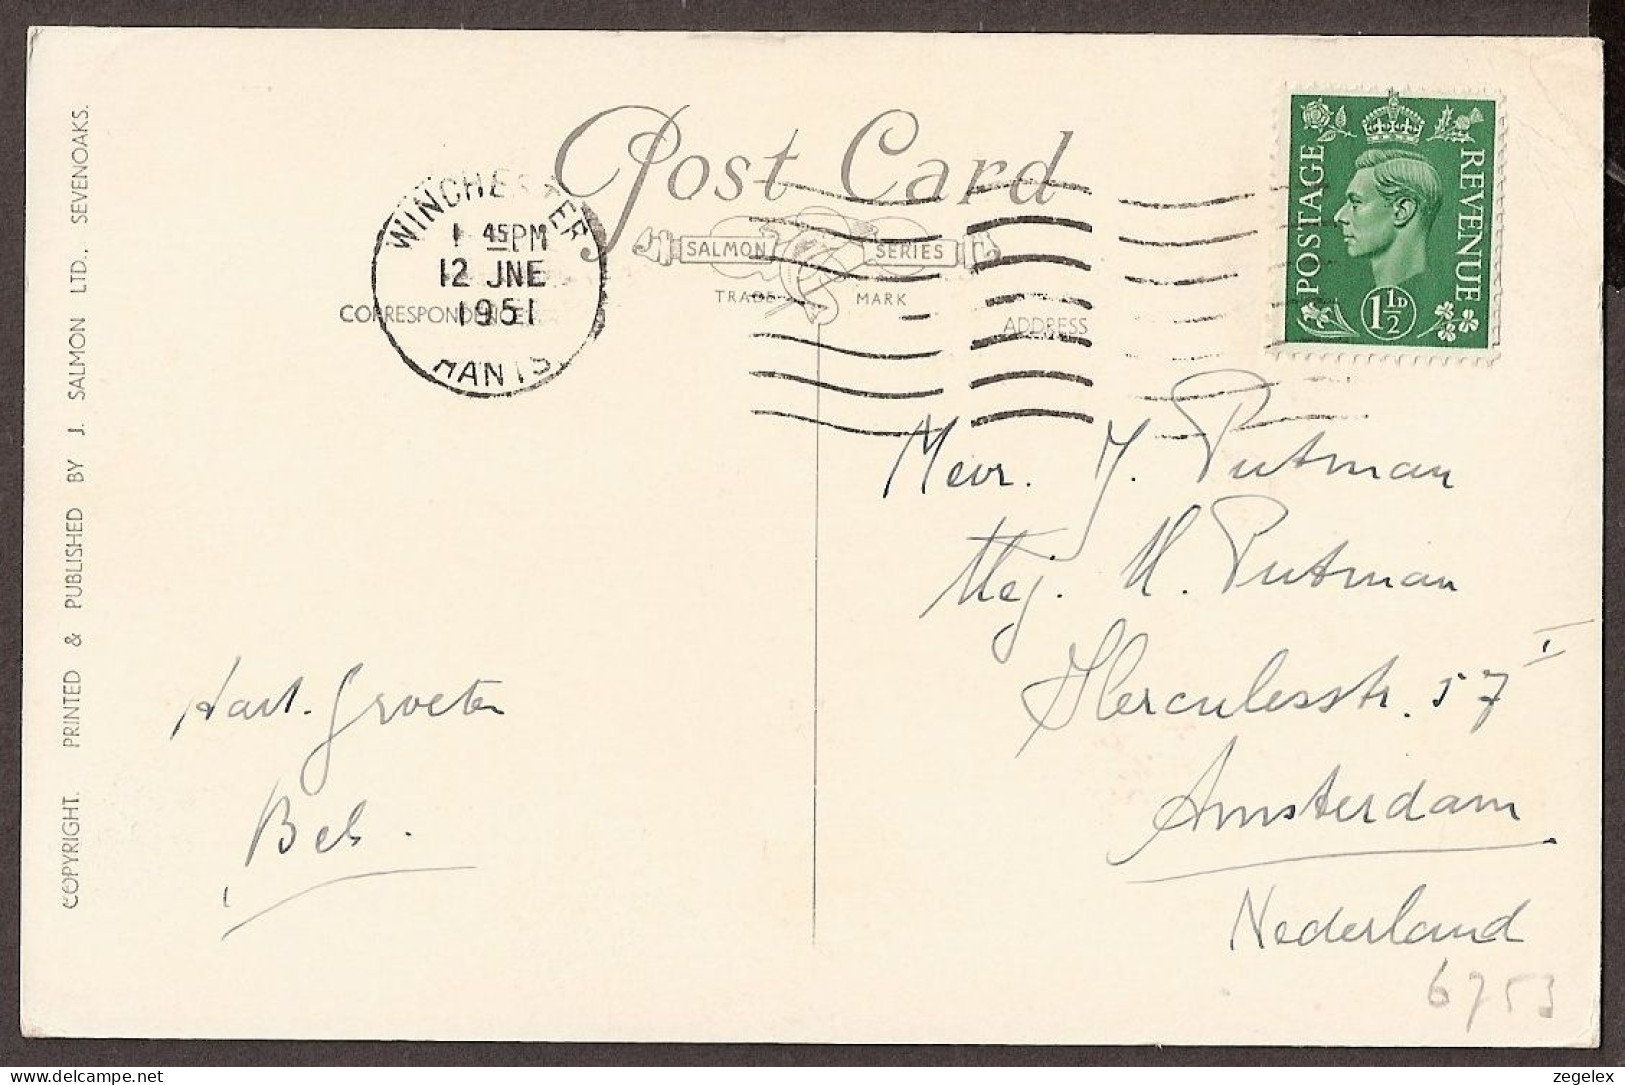 COPYRIGHT. PRINTED & PUBLISHED BY J. SALMON LTD., SEVENOAKS.
Post Card
SALMON SERIES
TRADE MARK
CORRESPONDENCE
ADDRESS
WINCHESTER
1 45 PM
12 JNE
1951
HANTS
POSTAGE REVENUE
1½D
Mevr. J. Putman
Mej. M. Putman
Herculesstr. 57 I
Amsterdam
Nederland
6753
Hart. Groeten
Beb.
zegelex